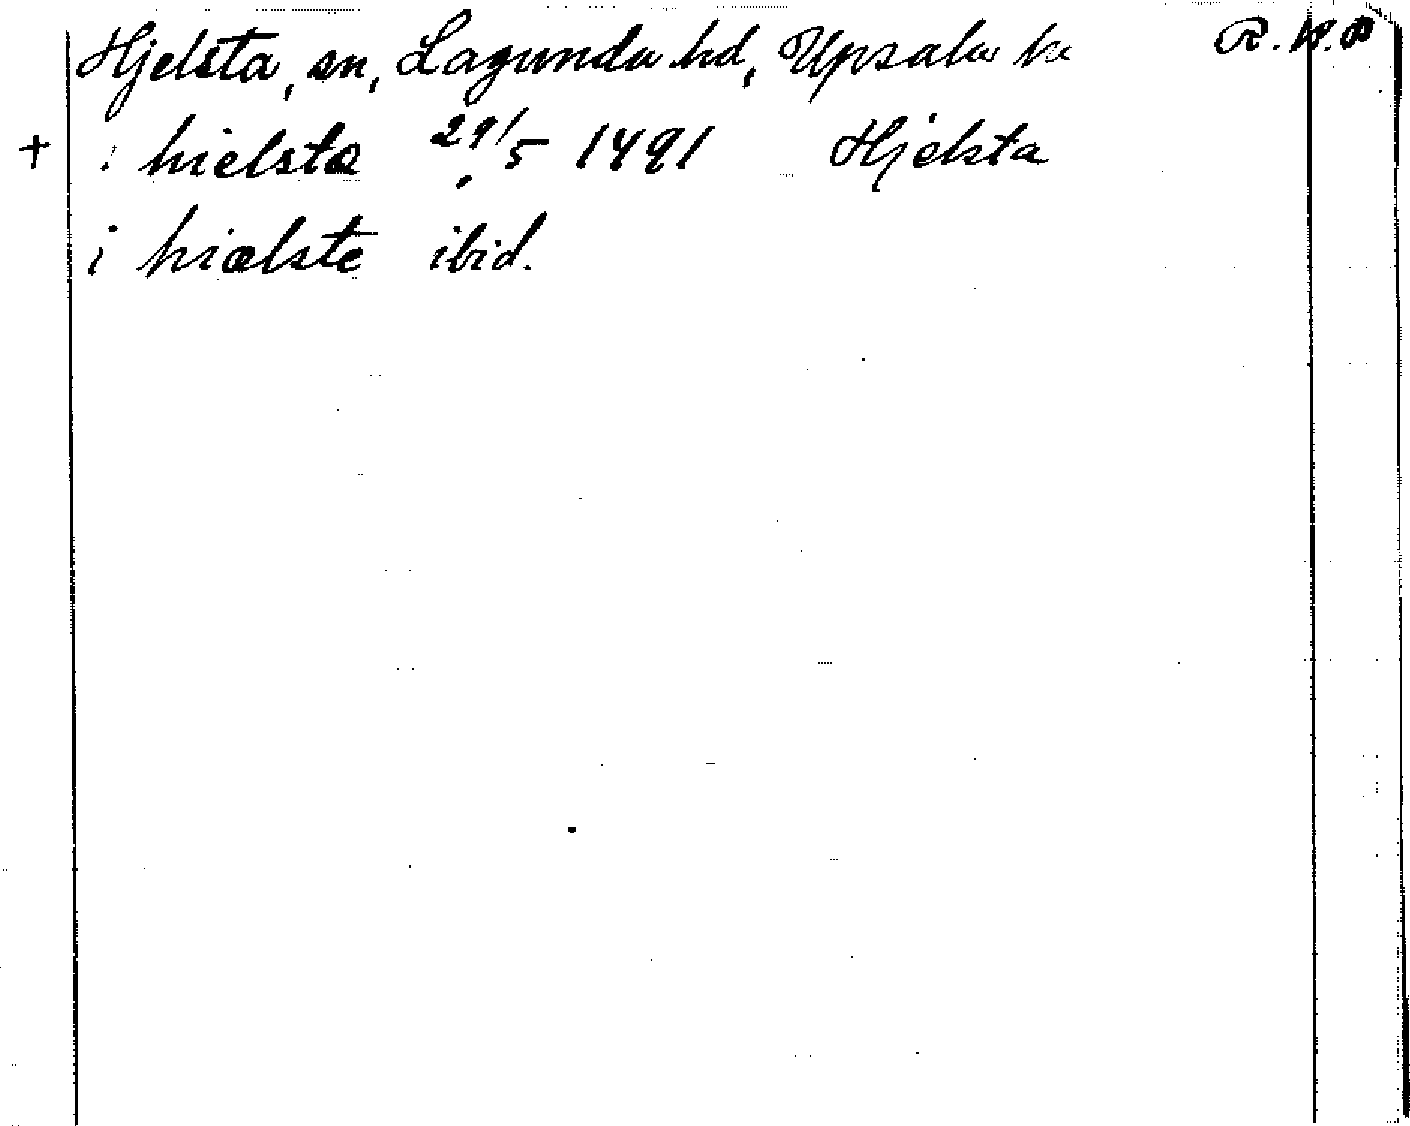 Hjelsta, sn, Lagunda hd, Upsala R.A.P
+ i hielsta 29/5 1491 Hjelsta
i hiælste ibid.